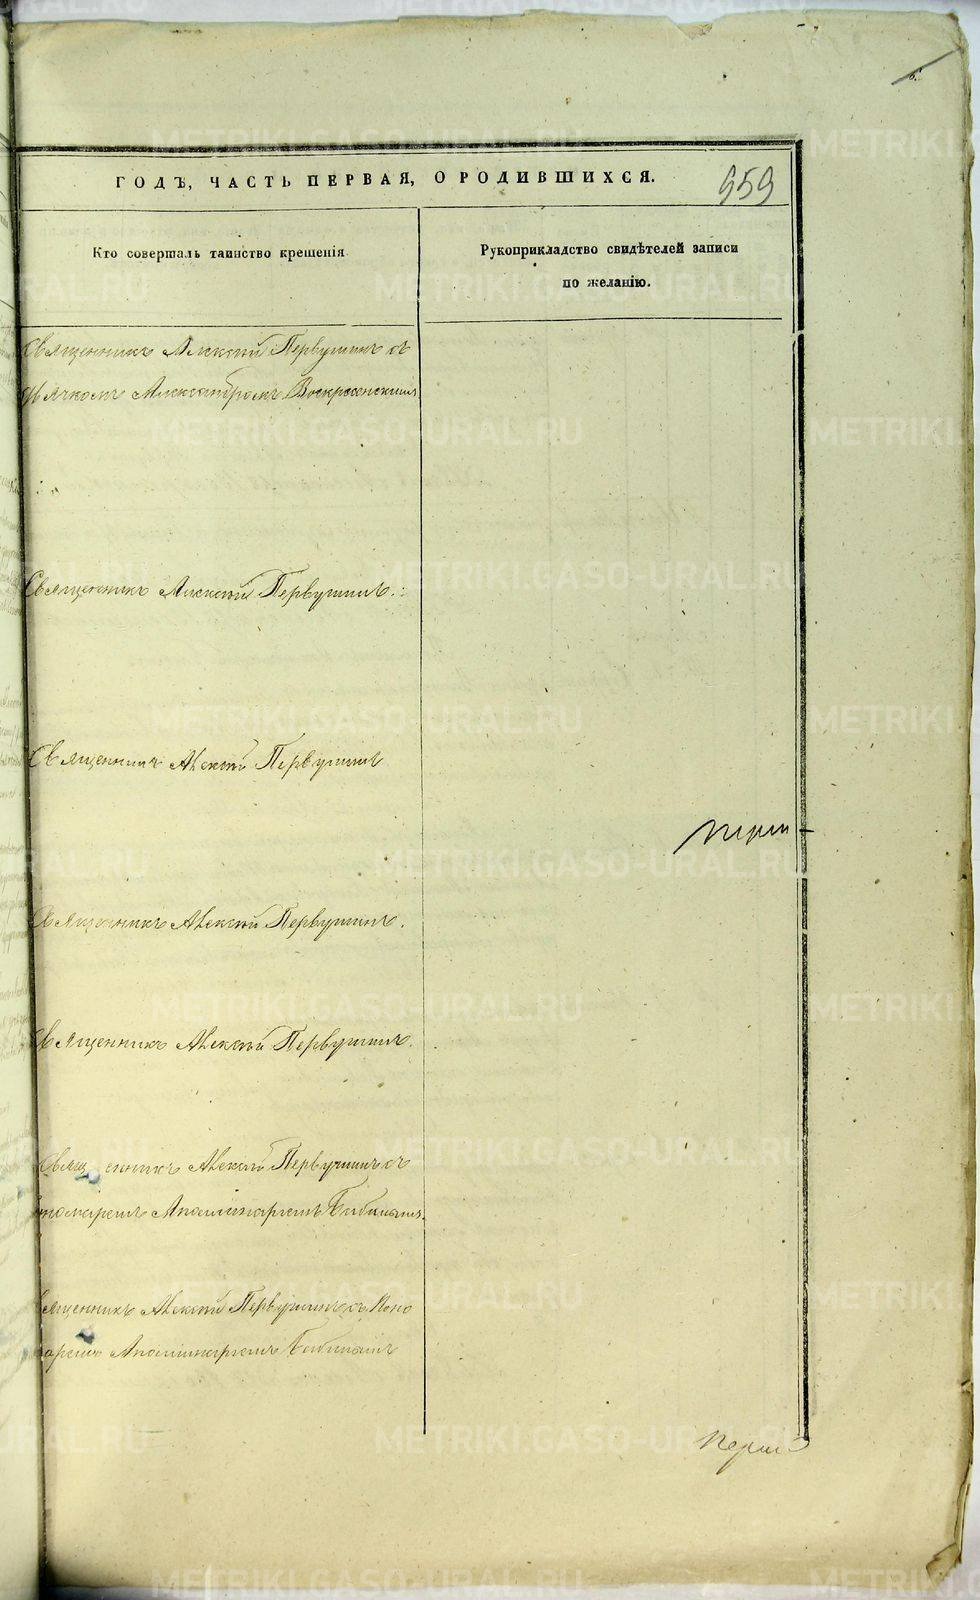 6.
ГОДЪ, ЧАСТЬ ПЕРВАЯ, О РОДИВШИХСЯ.
959
Кто совершалъ таинство крещенія
Рукоприкладство свидѣтелей записи
по желанію.
Священникъ Алексѣй Первушинъ съ
дьячкомъ Александромъ Воскресенскимъ
Священникъ Алексѣй Первушинъ.
Священникъ Алексѣй Первушинъ
Священникъ Алексѣй Первушинъ.
Священникъ Алексѣй Первушинъ.
Священникъ Алексѣй Первушинъ съ
пономаремъ Аполлинаріемъ
Священникъ Алексѣй Первушинъ съ Поно
маремъ Аполлинаріемъ
METRIKI.GASO-URAL.RU